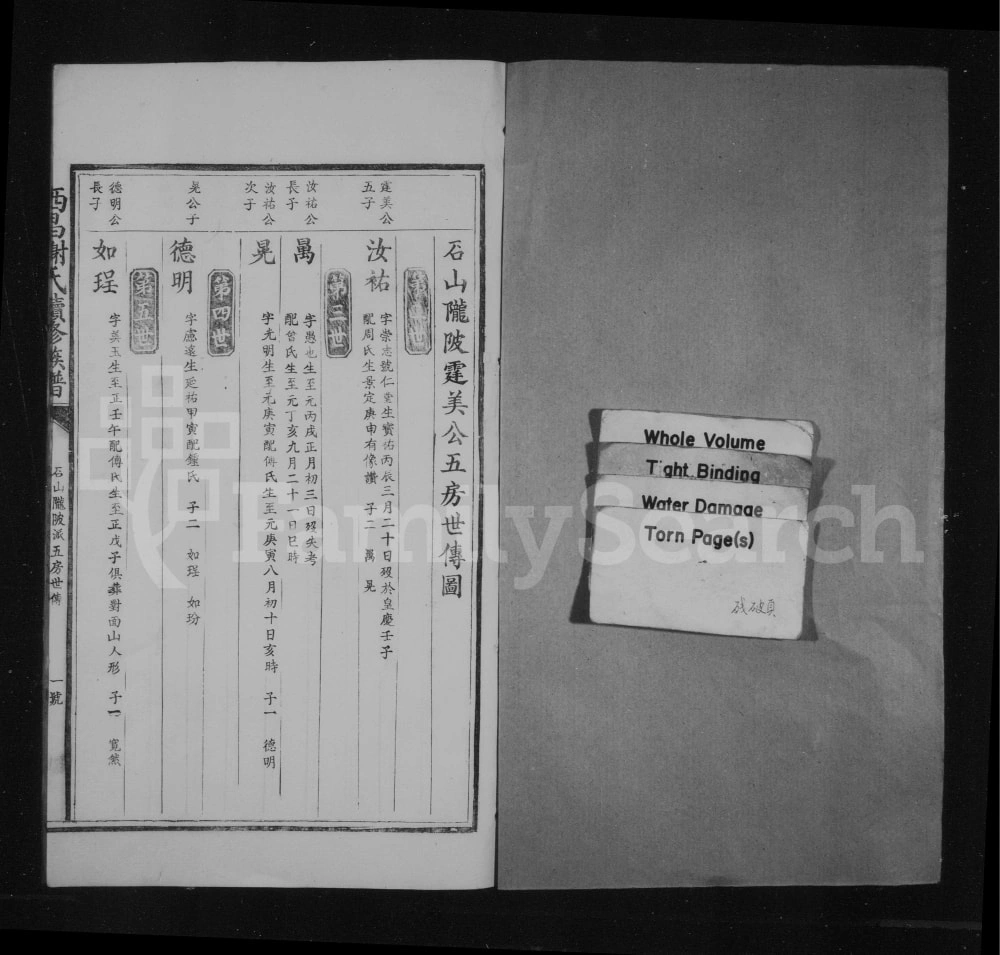 石山隴陂霆美公五房世傳圖
霆美公
五子
汝祐
字崇志號仁堂生寶佑丙辰三月二十日歿於皇慶壬子
配周氏生景定庚申有像讚 子二 萬 晃
第三世
汝祐公
長子
萬
字愚也生至元丙戌正月初三日歿失考
配曾氏生至元丁亥九月二十一日巳時
汝祐公
次子
晃
字光明生至元庚寅配傅氏生至元庚寅八月初十日亥時 子一 德明
第四世
晃公子
德明
字處遠生延祐甲寅配鍾氏 子二 如珵 如玢
第五世
德明公
長子
如珵
字英玉生至正壬午配傅氏生至正戊子俱葬對面山人形 子一 寬然
西昌謝氏續修族譜
石山隴陂派五房世傳
一號
Whole Volume
Tight Binding
Water Damage
Torn Page(s)
残破頁
FamilySearch